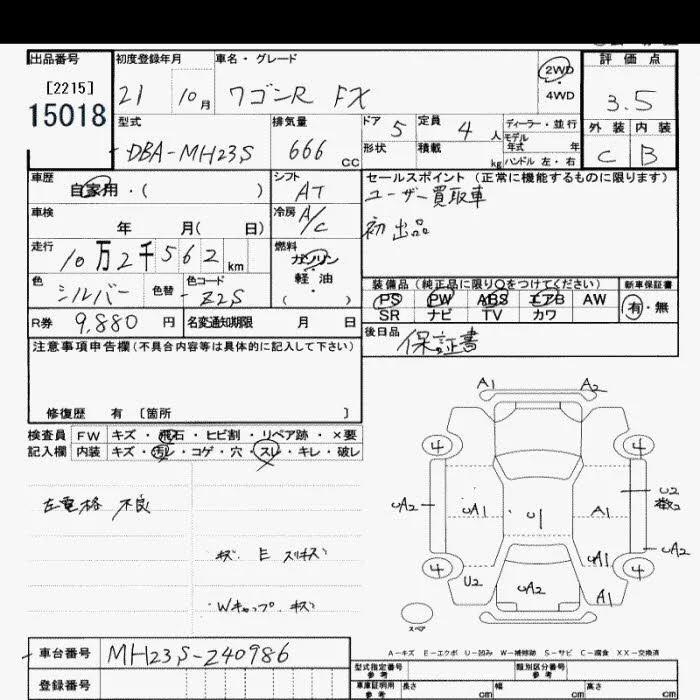 出品番号
[2215]
15018
初度登録年月
21 10月
車名・グレード
ワゴンR FX
2WD
4WD
評価点
3.5
外装 内装
C B
型式
DBA-MH23S
排気量
666 CC
ドア 5
定員 4 人
形状
積載 kg
ディーラー・並行
モデル年式 年
ハンドル 左・右
車歴
自家用・( )
シフト
AT
セールスポイント(正常に機能するものに限ります)
ユーザー買取車
初出品
車検
年 月( 日)
冷房
A/C
走行
10万2千562km
燃料
ガソリン
軽油
( )
色
シルバー
色替
色コード
Z2S
装備品(純正品に限り○をつけてください)
PS PW ABS エアB AW
SR ナビ TV カワ
新車保証書
有・無
R券 9,880円
名変通知期限 月 日
後日品
保証書
注意事項申告欄(不具合内容等は具体的に記入して下さい)
修復歴 有 [箇所 ]
検査員
記入欄
FW キズ・飛石・ヒビ割・リペア跡・×要
内装 キズ・汚レ・コゲ・穴・スレ・キレ・破レ
左電格 不良
キズ E スリキズ
Wキャップ キズ
A1 A2
4 4
UA2 UA1 U1 A1 U2
UA1 UA2
4 4
U2 UA2 A1
スペア
A-キズ E-エクボ U-凹み W-補修跡 S-サビ C-腐食 XX-交換済
車台番号
MH23S-240986
登録番号
型式指定番号
参考
類別区分番号
参考
車庫証明用
参考
長さ cm
幅 cm
高さ cm